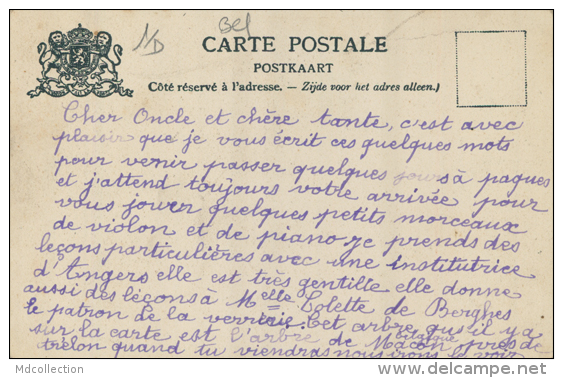 ND
Bel
CARTE POSTALE
POSTKAART
Côté réservé à l'adresse. — Zijde voor het adres alleen.)
Cher Oncle et chère tante, c'est avec
plaisir que je vous écrit ces quelques mots
pour venir passer quelques jours à paques
et j'attend toujours votre arrivée pour
vous jouer quelques petits morceaux
de violon et de piano je prends des
leçons particulières avec une institutrice
d'Angers elle est très gentille elle donne
aussi des leçons à Melle Colette de Berghes
le patron de la verrerie. Cet arbre qus'il y a
sur la carte est l'arbre de Macon près de
trélon quand tu viendras nous irons le voir
Mdcollection
delcampe.net